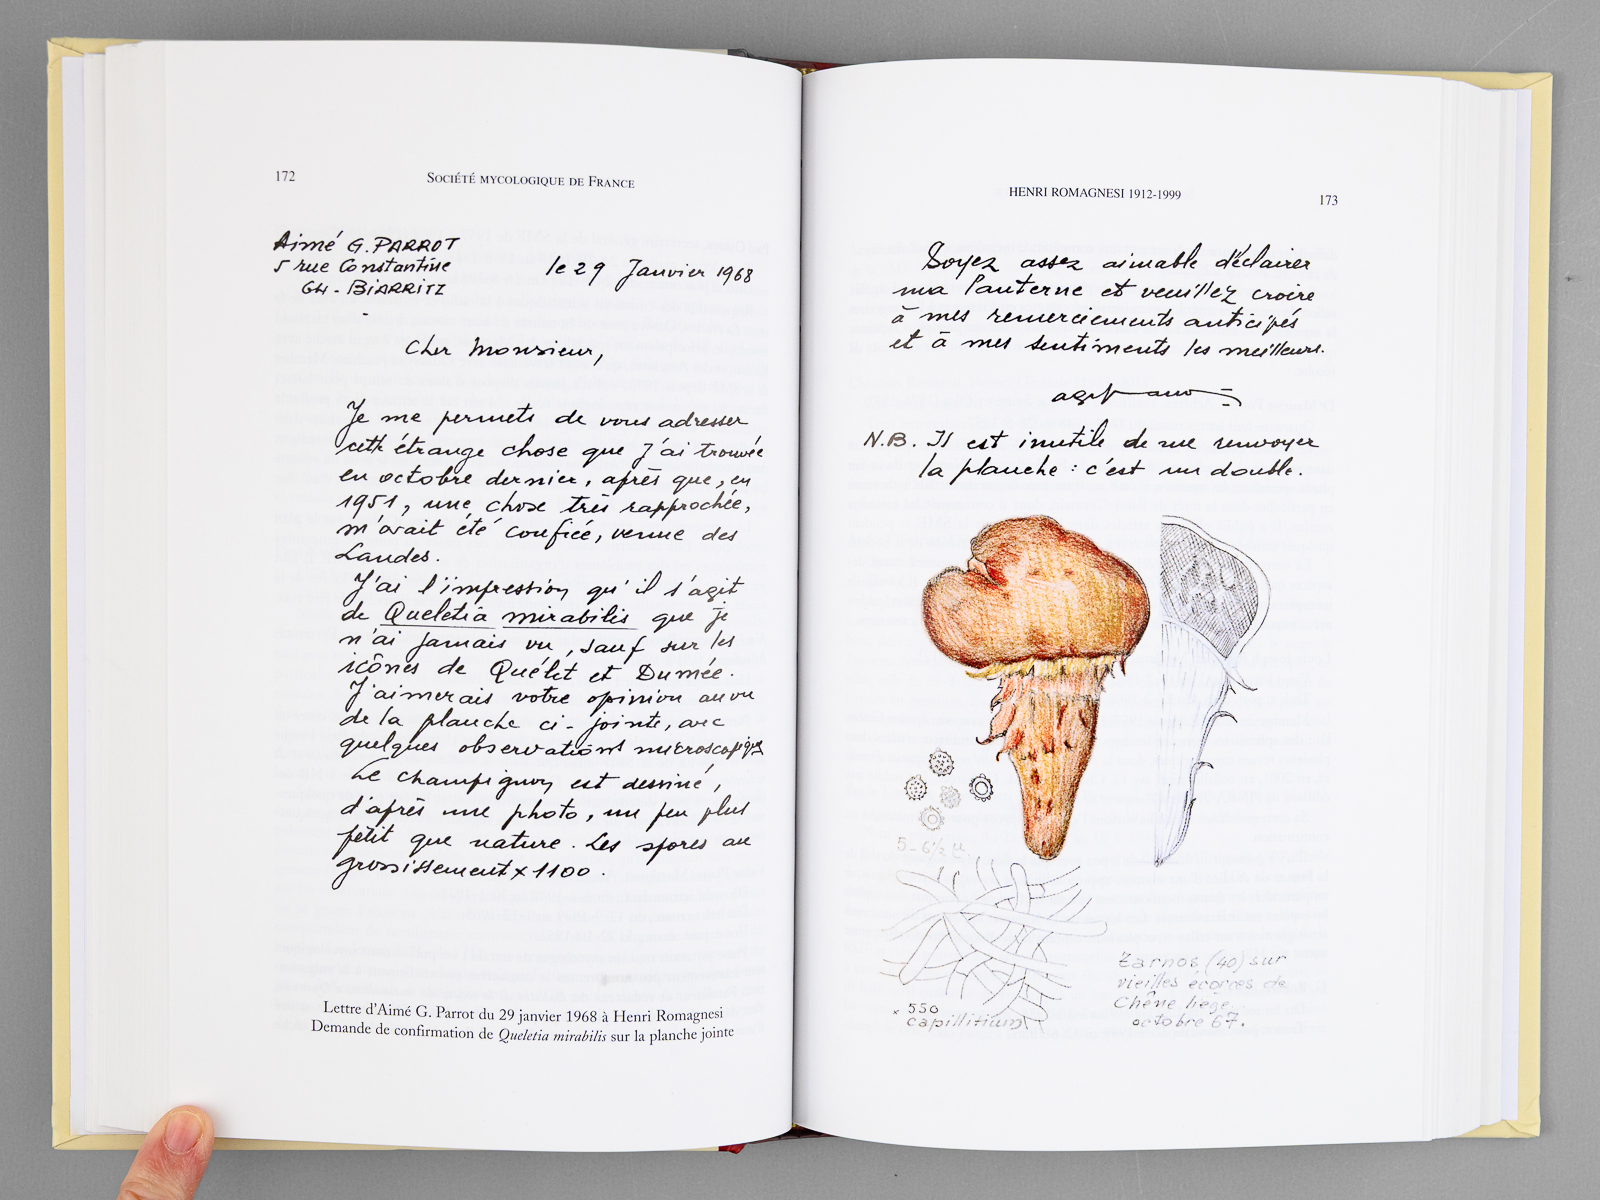 172
SOCIÉTÉ MYCOLOGIQUE DE FRANCE
Aimé G. PARROT
5 rue Constantine
64 - BIARRITZ
le 29 Janvier 1968
Cher Monsieur,
Je me permets de vous adresser
cette étrange chose que j'ai trouvée
en octobre dernier, après que, en
1951, une chose très rapprochée,
m'avait été confiée, venue des
Landes.
J'ai l'impression qu'il s'agit
de Queletia mirabilis que je
n'ai jamais vu, sauf sur les
icônes de Quélet et Dumée.
J'aimerais votre opinion au vu
de la planche ci-jointe, avec
quelques observations microscopiques
Le champignon est dessiné,
d'après une photo, un peu plus
petit que nature. Les spores au
grossissement x 1100.
Lettre d'Aimé G. Parrot du 29 janvier 1968 à Henri Romagnesi
Demande de confirmation de Queletia mirabilis sur la planche jointe
HENRI ROMAGNESI 1912-1999
173
Soyez assez aimable d'éclairer
ma lanterne et veuillez croire
à mes remerciements anticipés
et à mes sentiments les meilleurs.
N.B. Il est inutile de me renvoyer
la planche : c'est un double.
5 - 6 1/2 µ
x 550
capillitium
Tarnos (40) sur
vieilles écorces de
Chêne liège
octobre 67.